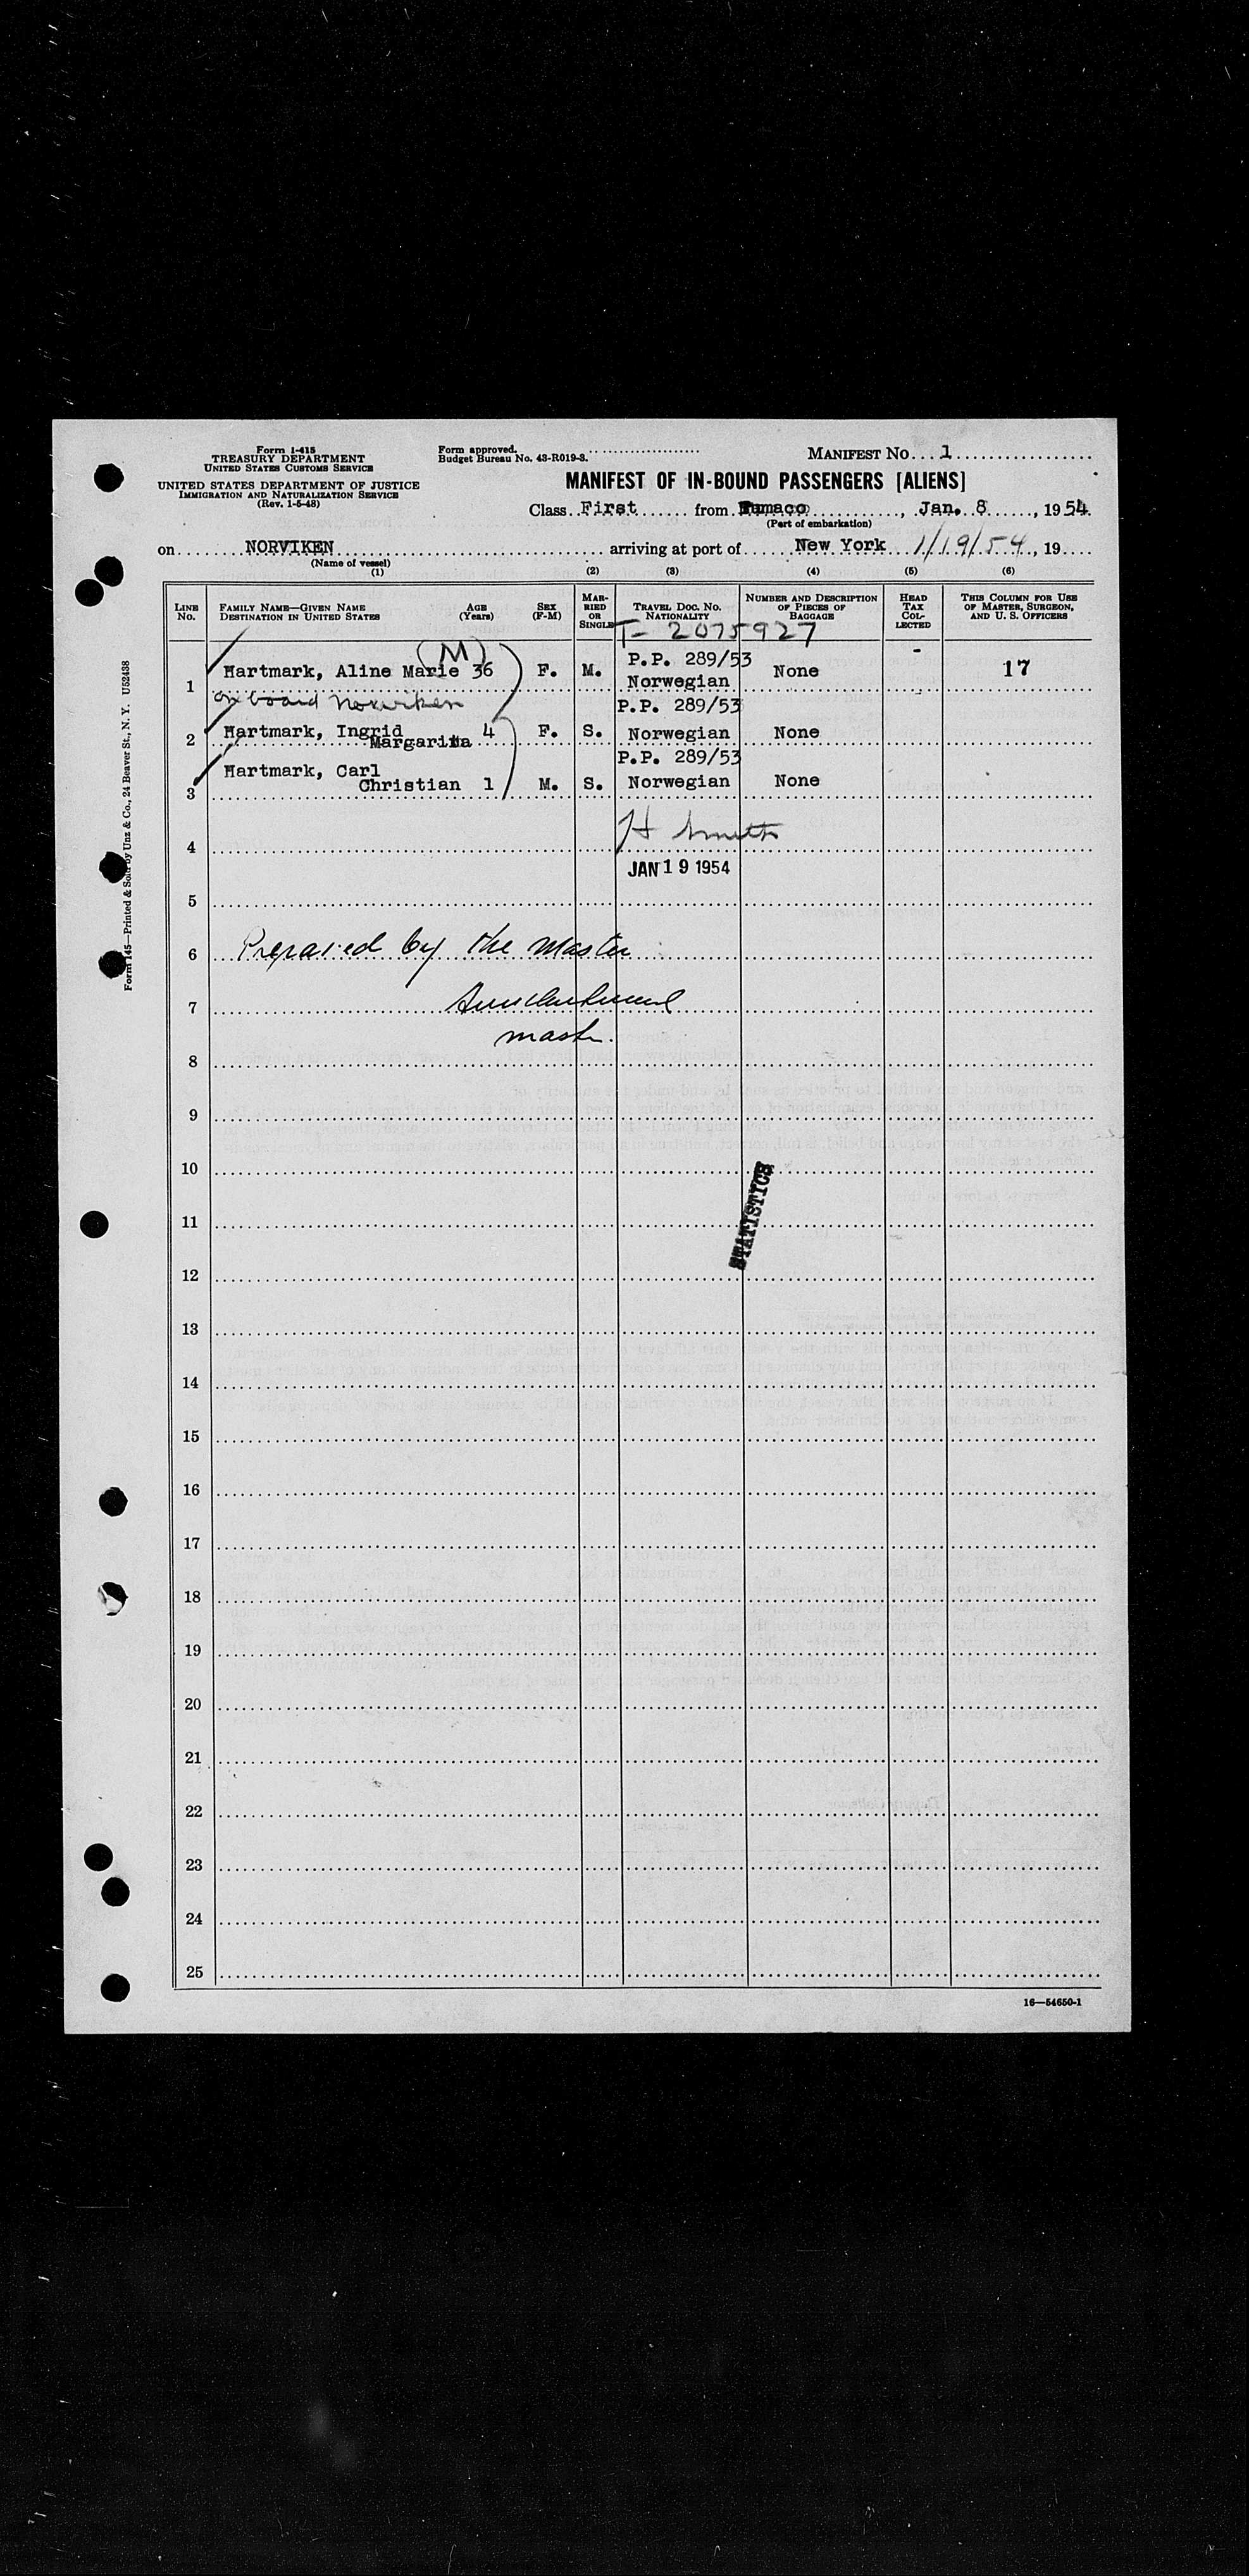 Form I-415
TREASURY DEPARTMENT
UNITED STATES CUSTOMS SERVICE
UNITED STATES DEPARTMENT OF JUSTICE
IMMIGRATION AND NATURALIZATION SERVICE
(Rev. 1-5-48)
Form approved.
Budget Bureau No. 43-R019-3.
MANIFEST No. 1
MANIFEST OF IN-BOUND PASSENGERS [ALIENS]
Class First from Tumaco, Jan. 8, 1954
(Port of embarkation)
on NORVIKEN arriving at port of New York 1/19/54, 19
(Name of vessel)
(1) (2) (3) (4) (5) (6)
LINE No. FAMILY NAME—GIVEN NAME DESTINATION IN UNITED STATES AGE (Years) SEX (F-M) MARRIED OR SINGLE TRAVEL DOC. No. NATIONALITY NUMBER AND DESCRIPTION OF PIECES OF BAGGAGE HEAD TAX COLLECTED THIS COLUMN FOR USE OF MASTER, SURGEON, AND U. S. OFFICERS
T-2075927
(M)
1 Hartmark, Aline Marie 36 F. M. P.P. 289/53 Norwegian None - 17
on board Norviken
2 Hartmark, Ingrid Margarita 4 F. S. P.P. 289/53 Norwegian None
3 Hartmark, Carl Christian 1 M. S. P.P. 289/53 Norwegian None
H Smith
4
JAN 19 1954
5
6 Prepared by the Master
7
master.
8
9
10
STATISTICS
11
12
13
14
15
16
17
18
19
20
21
22
23
24
25
16—54650-1
Form 145—Printed & Sold by Unz & Co., 24 Beaver St., N. Y. U52438